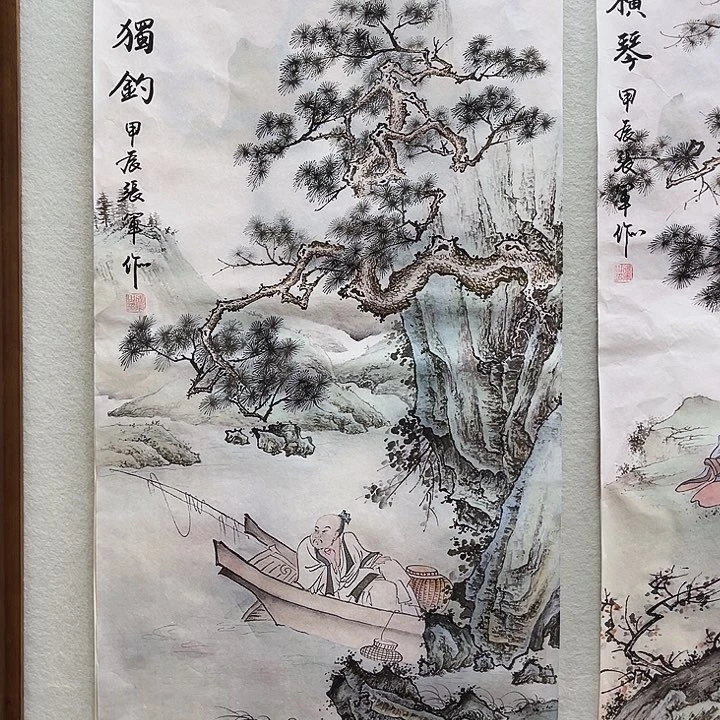 獨釣
甲辰張軍作
橫琴
甲辰張軍作